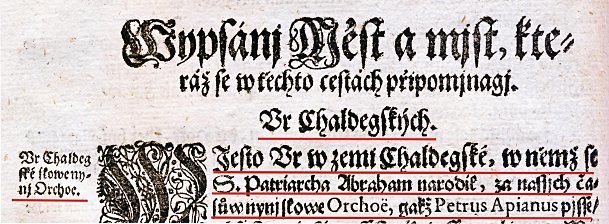 Wypsánj Měst a mjst, kte-
ráž se w těchto cestách připomjnagj.
Vr Chaldegských.
Vr Chaldeg
ské slowe ny-
nj Orchoe.
Mjesto Vr w zemi Chaldegské, w němž se
S. Patriarcha Abraham narodil, za nassjch ča-
sůw nynj slowe Orchoë, gakž Petrus Apianus pjsse